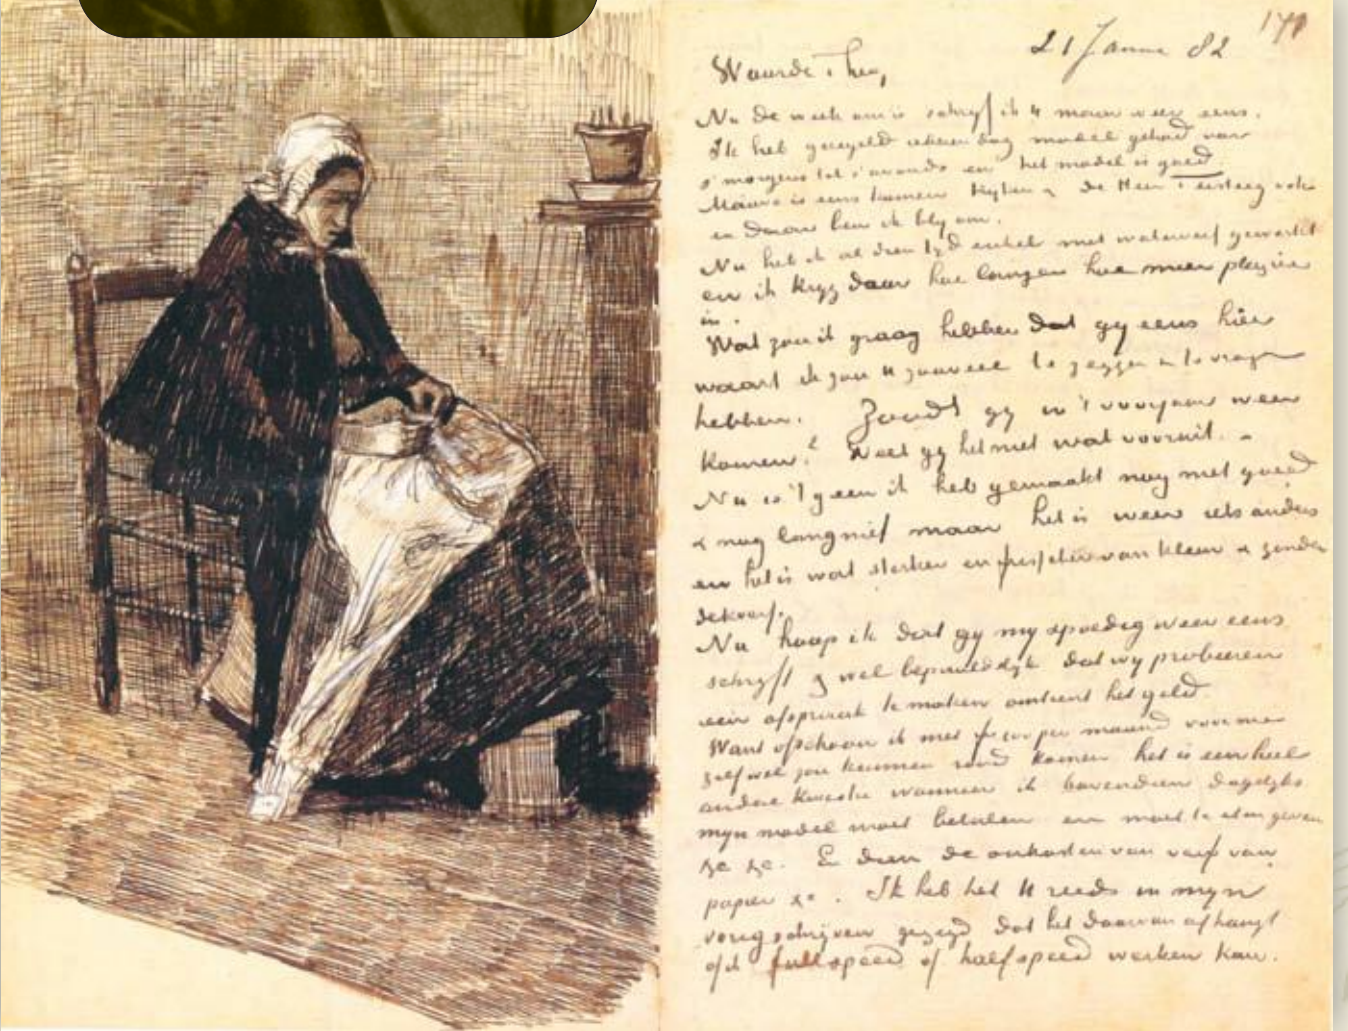 171
21 Januar 82
Waarde Theo,
Nu de week om is schrijf ik U maar weer eens.
Ik heb geregeld iederen dag model gehad van
s'morgens tot s'avonds en het model is goed.
Mauve is eens komen kijken & de Heer Tersteeg ook
en daar ben ik bly om.
Nu heb ik al dien tyd enkel met waterverf gewerkt
en ik kryg daar hoe langer hoe meer plezier
in.
Wat zou ik graag hebben dat gy eens hier
waart ik zou U zooveel te zeggen & te vragen
hebben. Zoudt gy in 't voorjaar weer
komen? Weet gy het niet wat vooruit. –
Nu is 't geen ik heb gemaakt nog niet goed
& nog lang niet maar het is weer iets anders
en het is wat sterker en frisscher van kleur & zonder
dekverf.
Nu hoop ik dat gy my spoedig weer eens
schryft & wel bepaaldelyk dat wy probeeren
een afspraak te maken omtrent het geld.
Want ofschoon ik met fr 100 per maand voor me
zelf wel zou kunnen rond komen het is een heel
andere kwestie wanneer ik bovendien dagelyks
myn model moet betalen en moet te eten geven
&c &c. En dien de onkosten van verf van
papier &c. Ik heb het U reeds in myn
vorig schrijven gezegd dat het daarvan afhangt
of ik full speed of half speed werken kan.